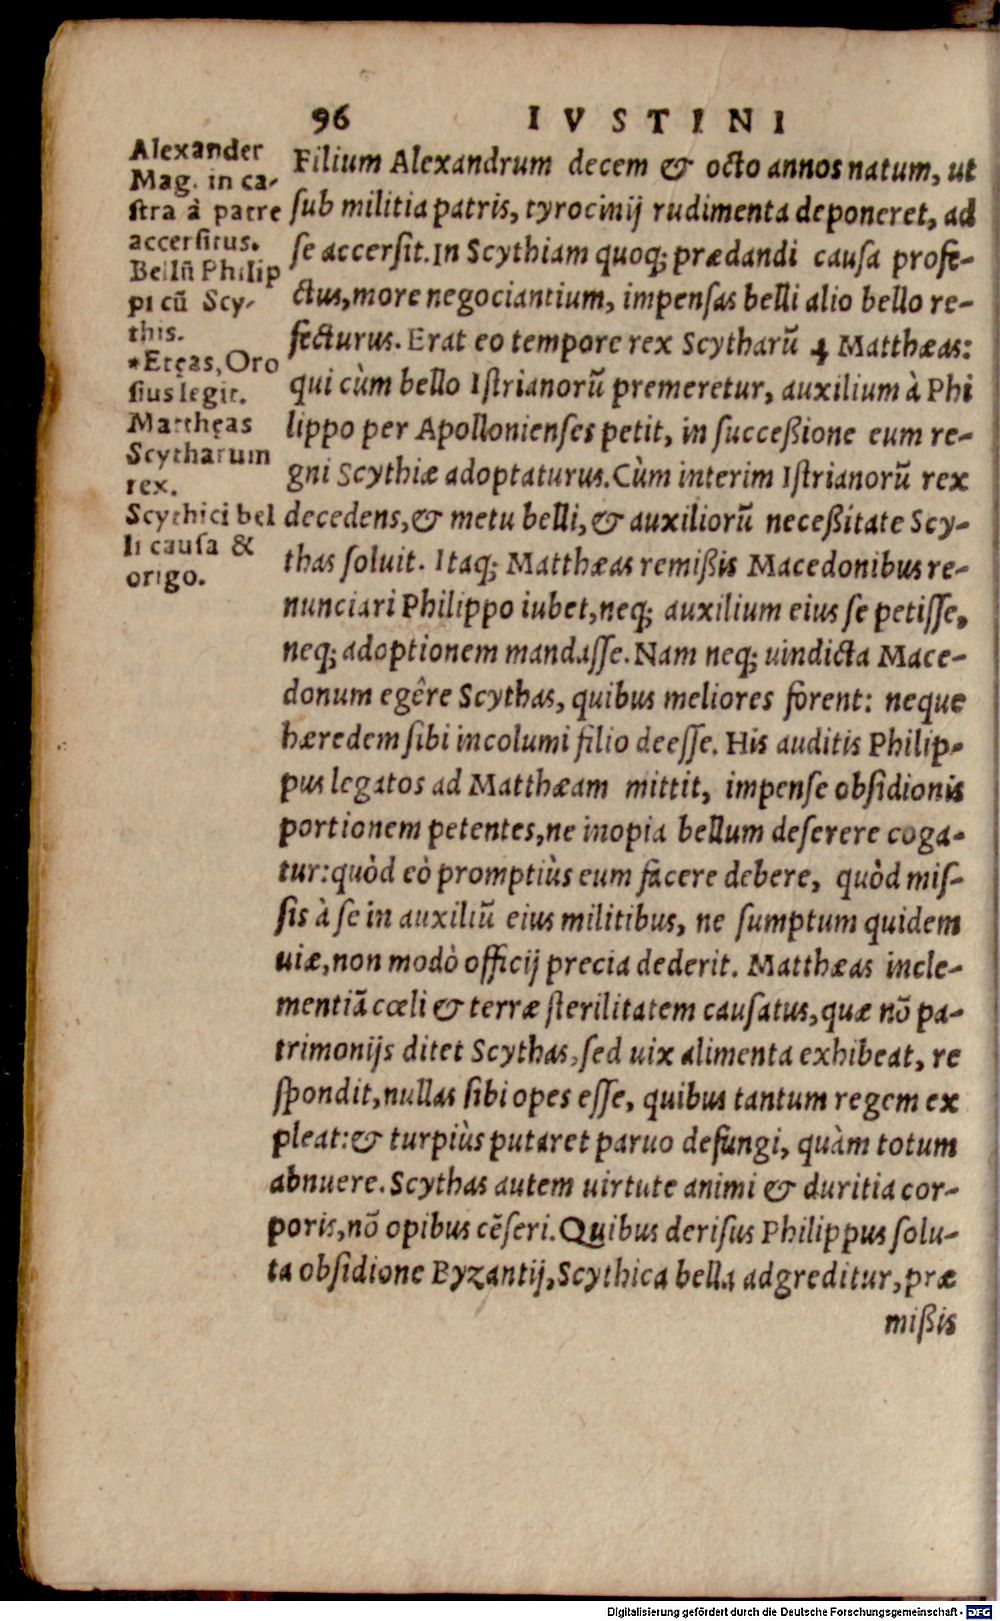 96 IVSTINI
Alexander
Mag. in ca-
ſtra à patre
accerſitus.
Bellũ Philip
pi cũ Scy-
this.
*Etęas, Oro
ſius legit.
Matthęas
Scytharum
rex.
Scythici bel
li cauſa &
origo.
Filium Alexandrum decem & octo annos natum, ut
ſub militia patris, tyrocinij rudimenta deponeret, ad
ſe accerſit. In Scythiam quoq; prædandi cauſa profe-
ctus, more negociantium, impenſas belli alio bello re-
fecturus. Erat eo tempore rex Scytharũ Matthæas:
qui cùm bello Iſtrianorũ premeretur, auxilium à Phi
lippo per Apollonienſes petit, in ſucceßione eum re-
gni Scythiæ adoptaturus. Cùm interim Iſtrianorũ rex
decedens, & metu belli, & auxiliorũ neceßitate Scy-
thas ſoluit. Itaq; Matthæas remißis Macedonibus re-
nunciari Philippo iubet, neq; auxilium eius ſe petiſſe,
neq; adoptionem mandaſſe. Nam neq; uindicta Mace-
donum egêre Scythas, quibus meliores forent: neque
hæredem ſibi incolumi filio deeſſe. His auditis Philip-
pus legatos ad Matthæam mittit, impenſe obſidionis
portionem petentes, ne inopia bellum deſerere coga-
tur: quòd eò promptiùs eum facere debere, quòd miſ-
ſis à ſe in auxiliũ eius militibus, ne ſumptum quidem
uiæ, non modò officij precia dederit. Matthæas incle-
mentiã cœli & terræ ſterilitatem cauſatus, quæ nõ pa-
trimonijs ditet Scythas, ſed uix alimenta exhibeat, re
ſpondit, nullas ſibi opes eſſe, quibus tantum regem ex
pleat: & turpiùs putaret paruo defungi, quàm totum
abnuere. Scythas autem uirtute animi & duritia cor-
poris, nõ opibus cẽſeri. Quibus deriſus Philippus ſolu-
ta obſidione Byzantij, Scythica bella adgreditur, præ
mißis
Digitalisierung gefördert durch die Deutsche Forschungsgemeinschaft - DFG